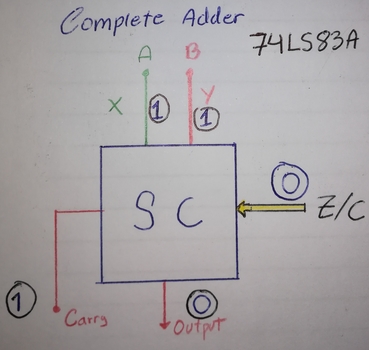 Complete Adder
74LS83A
A B
X 1 Y 1
S C
0
Z/C
1
Carry
0
Output